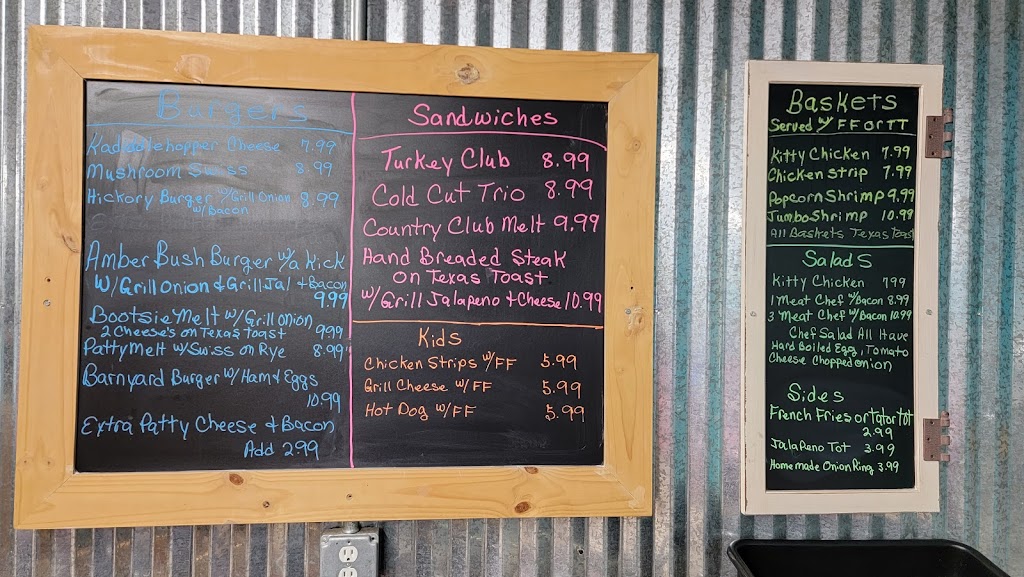 Burgers
Kadiddlehopper Cheese 7.99
Mushroom Swiss 8.99
Hickory Burger w/Grill Onion 8.99
w/Bacon
Amber Bush Burger w/a Kick
w/Grill Onion & Grill Jal + Bacon
9.99
Bootsie Melt w/Grill onion
2 Cheese's on Texas Toast 9.99
Patty Melt w/Swiss on Rye 8.99
Barnyard Burger w/Ham & Eggs
10.99
Extra Patty Cheese & Bacon
Add 2.99
Sandwiches
Turkey Club 8.99
Cold Cut Trio 8.99
Country Club Melt 9.99
Hand Breaded Steak
on Texas Toast
w/Grill Jalapeno + Cheese 10.99
Kids
Chicken Strips w/FF 5.99
Grill Cheese w/FF 5.99
Hot Dog w/FF 5.99
Baskets
Served w/ FF or TT
Kitty Chicken 7.99
Chicken Strip 7.99
Popcorn Shrimp 9.99
Jumbo Shrimp 10.99
All Baskets Texas Toast
Salads
Kitty Chicken 7.99
1 Meat Chef w/Bacon 8.99
3 Meat Chef w/Bacon 10.99
Chef Salad All Have
Hard Boiled Egg, Tomato
Cheese Chopped onion
Sides
French Fries or Tator Tot
2.99
Jalapeno Tot 3.99
Homemade Onion Ring 3.99